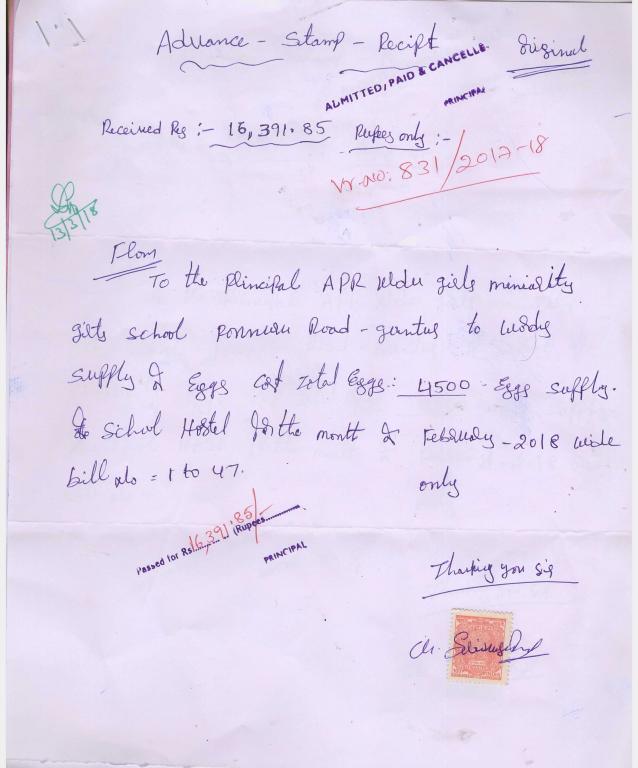 Advance - Stamp - Recipt
Original
ADMITTED, PAID & CANCELLE
PRINCIPAL
Received Rs :- 16,391.85 Rupees only :-
Vr.No: 831/2017-18
13/3/18
From
To the Principal APR girls miniarity
girls school Ponnuru Road - guntur to words
supply of Eggs cost total Eggs: 4500 - Eggs supply.
School Hostel for the month of February - 2018 wide
bill No = 1 to 47. only
Passed for Rs. 16,391.85/- (Rupees
PRINCIPAL
Thanking you sir
Ch.